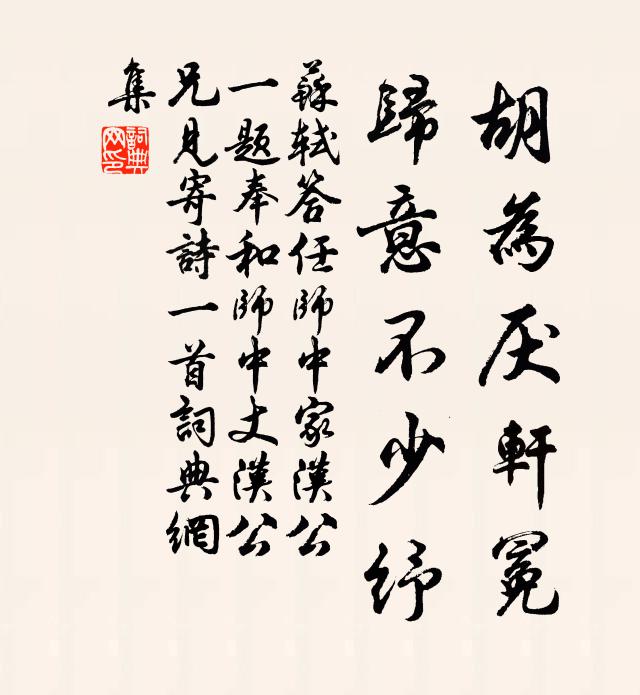 胡為厌軒冕
歸意不少紓
蘇軾答任師中家漢公
一題奉和師中丈漢公
兄見寄詩一首詞典網
集
詞典网印